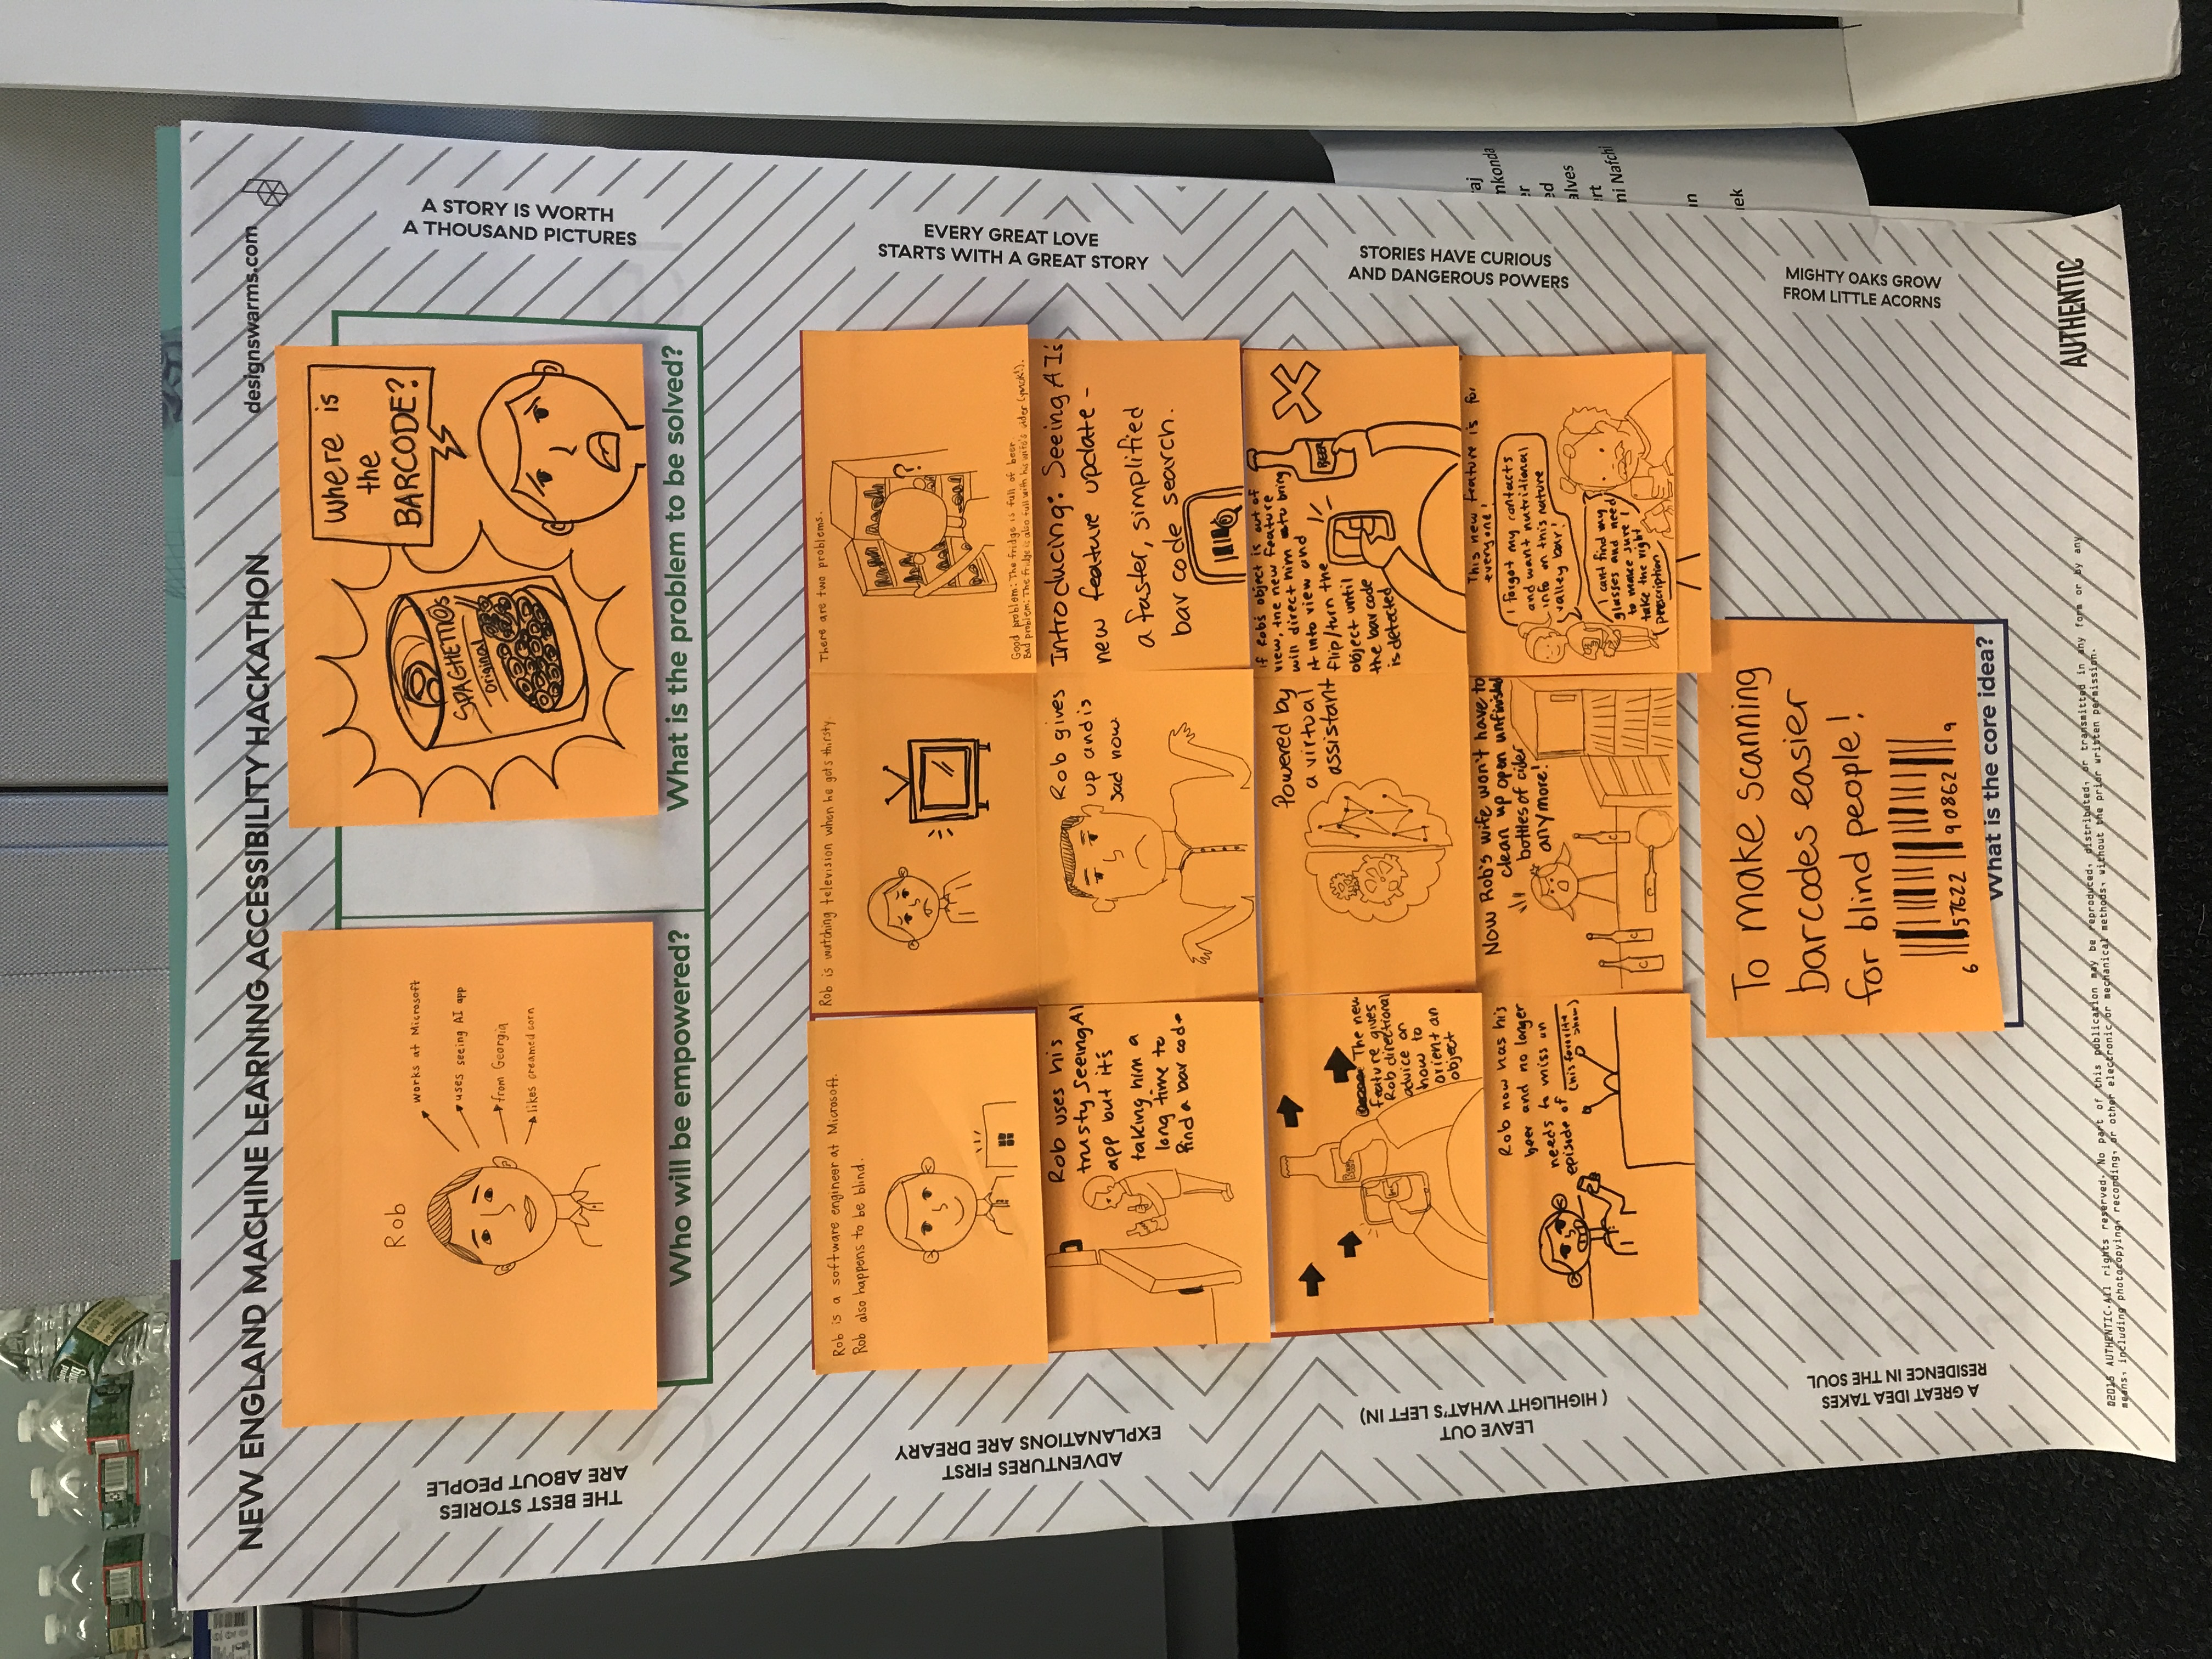 NEW ENGLAND MACHINE LEARNING ACCESSIBILITY HACKATHON
designswarms.com
THE BEST STORIES
ARE ABOUT PEOPLE
Rob
works at Microsoft
uses seeing AI app
from Georgia
likes creamed corn
Who will be empowered?
SPAGHETTIOs
Original
Where is
the
BARCODE?
What is the problem to be solved?
A STORY IS WORTH
A THOUSAND PICTURES
ADVENTURES FIRST
EXPLANATIONS ARE DREARY
Rob is a software engineer at Microsoft.
Rob also happens to be blind.
Rob is watching television when he gets thirsty.
There are two problems.
?
Good problem: The fridge is full of beer.
Bad problem: The fridge is also full with his wife's cider (yuck!).
EVERY GREAT LOVE
STARTS WITH A GREAT STORY
Rob uses his
trusty SeeingAI
app but it's
taking him a
long time to
find a bar code
Rob gives
up and is
sad now.
Introducing: Seeing AI's
new feature update -
a faster, simplified
bar code search.
LEAVE OUT
(HIGHLIGHT WHAT'S LEFT IN)
Beer
The new
feature gives
Rob directional
advice on
how to
orient an
object
Powered by
a virtual
assistant
If Rob's object is out of
view, the new feature
will direct him to bring
it into view and
flip/turn the
object until
the bar code
is detected
BEER
STORIES HAVE CURIOUS
AND DANGEROUS POWERS
Rob now has his
beer and no longer
needs to miss an
episode of
(his favorite
show)
Now Rob's wife won't have to
clean up open unfinished
bottles of cider
anymore!
C
C
C
This new feature is for
everyone!
I forgot my contacts
and want nutritional
info on this nature
valley bar!
I can't find my
glasses and need
to make sure I
take the right
prescription
A GREAT IDEA TAKES
RESIDENCE IN THE SOUL
To make scanning
barcodes easier
for blind people!
6 57622 90862 9
What is the core idea?
MIGHTY OAKS GROW
FROM LITTLE ACORNS
AUTHENTIC
©2015 AUTHENTIC.All rights reserved. No part of this publication may be reproduced, distributed, or transmitted in any form or by any
means, including photocopying, recording, or other electronic or mechanical methods, without the prior written permission.